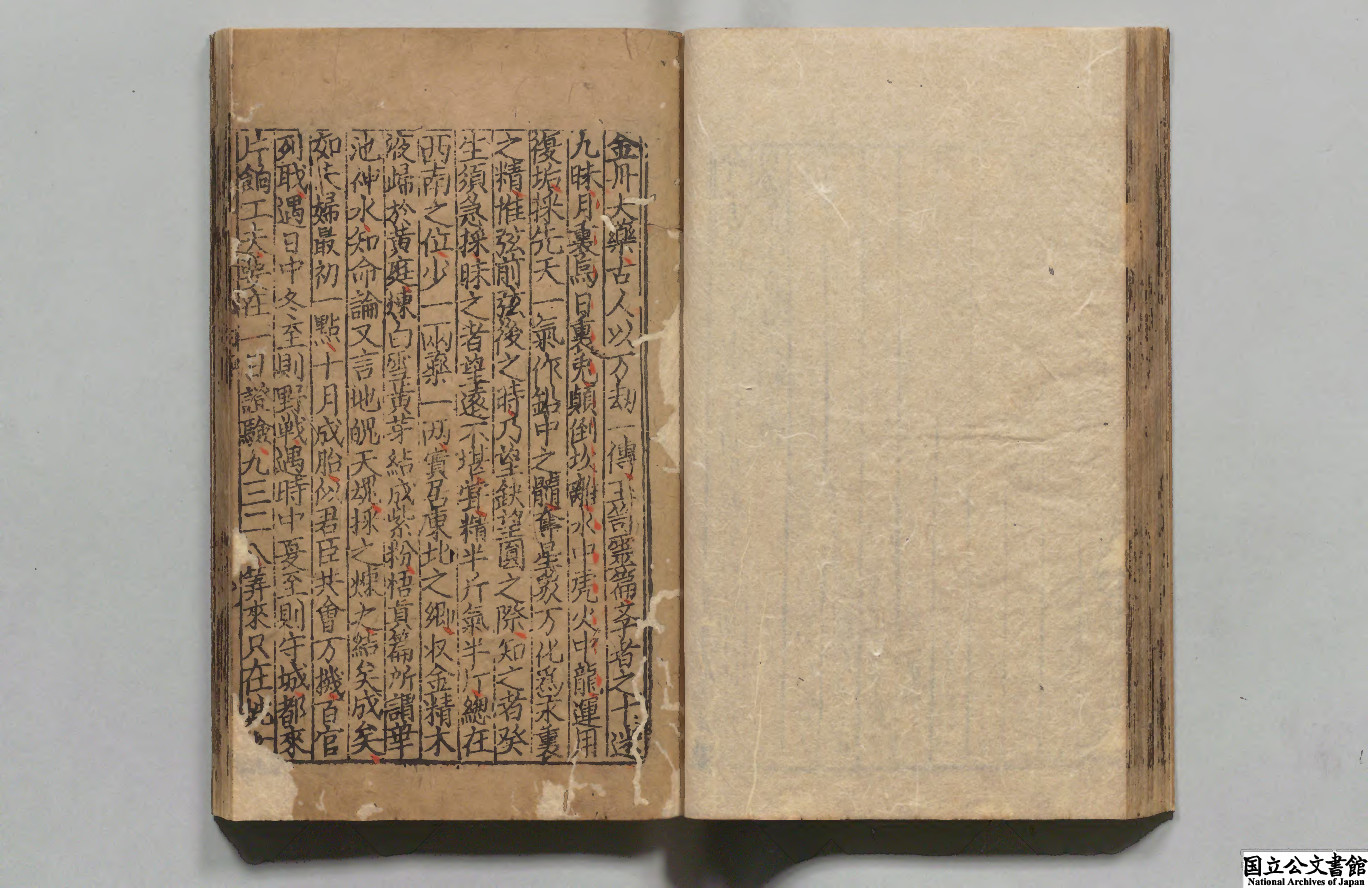 金丹大藥古人以万劫一傳玉笥靈篇斈者之十迷
九昧月裏烏日裏兎顛倒坎離水中虎火中龍運用
復垢採先天一氣作鉛中之髓奪星象万化爲末裏
之精惟弦前弦後之時乃望缺望圓之際知之者癸
生須急採昧之者望遠不堪嘗精半斤氣半斤總在
西南之位少一兩藥一兩實爲東北之郷收金精木
液歸於黄庭煉白雪黄芽結成紫粉悟真篇所謂華
池神水知命論又言地魄天魂採之煉之結矣成矣
如夫婦最初一點十月成胎似君臣共會万機百官
列耿遇日中冬至則野戦遇時中夏至則守城都來
片餉工夫要在一日證驗九三二八筭來只在
国立公文書館
National Archives of Japan